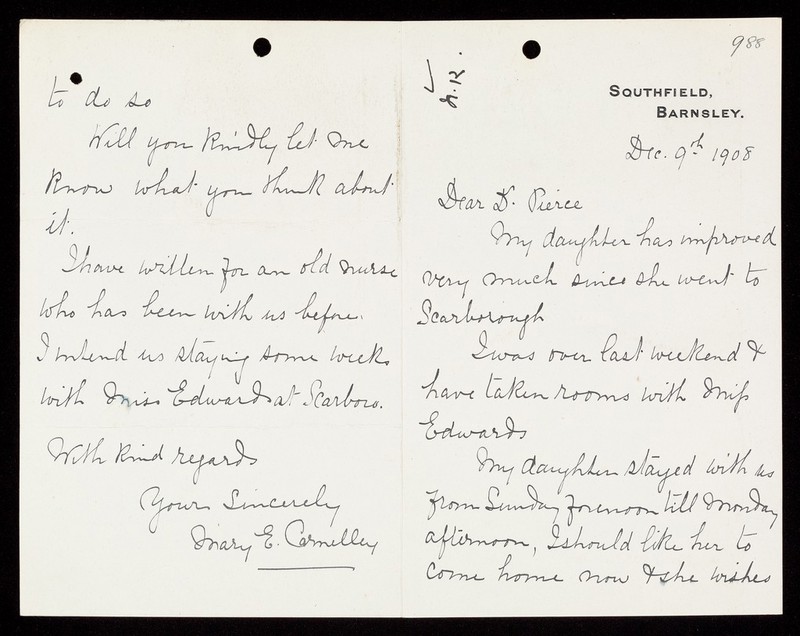 988
SOUTHFIELD,
BARNSLEY.
Dec. 9th 1908
Dear Dr. Pierce
My daughter has improved
very much since she went to
Scarborough
I was over last weekend &
have taken rooms with Miss
Edwards
My daughter stayed with us
from Sunday forenoon till Monday
afternoon, I should like her to
come home now & she wishes
to do so
Will you kindly let me
know what you think about
it.
I have written for an old nurse
who has been with us before.
I intend us staying some weeks
with Miss Edwards at Scarboro.
With kind regards
Yours Sincerely
Mary E. Carnelley